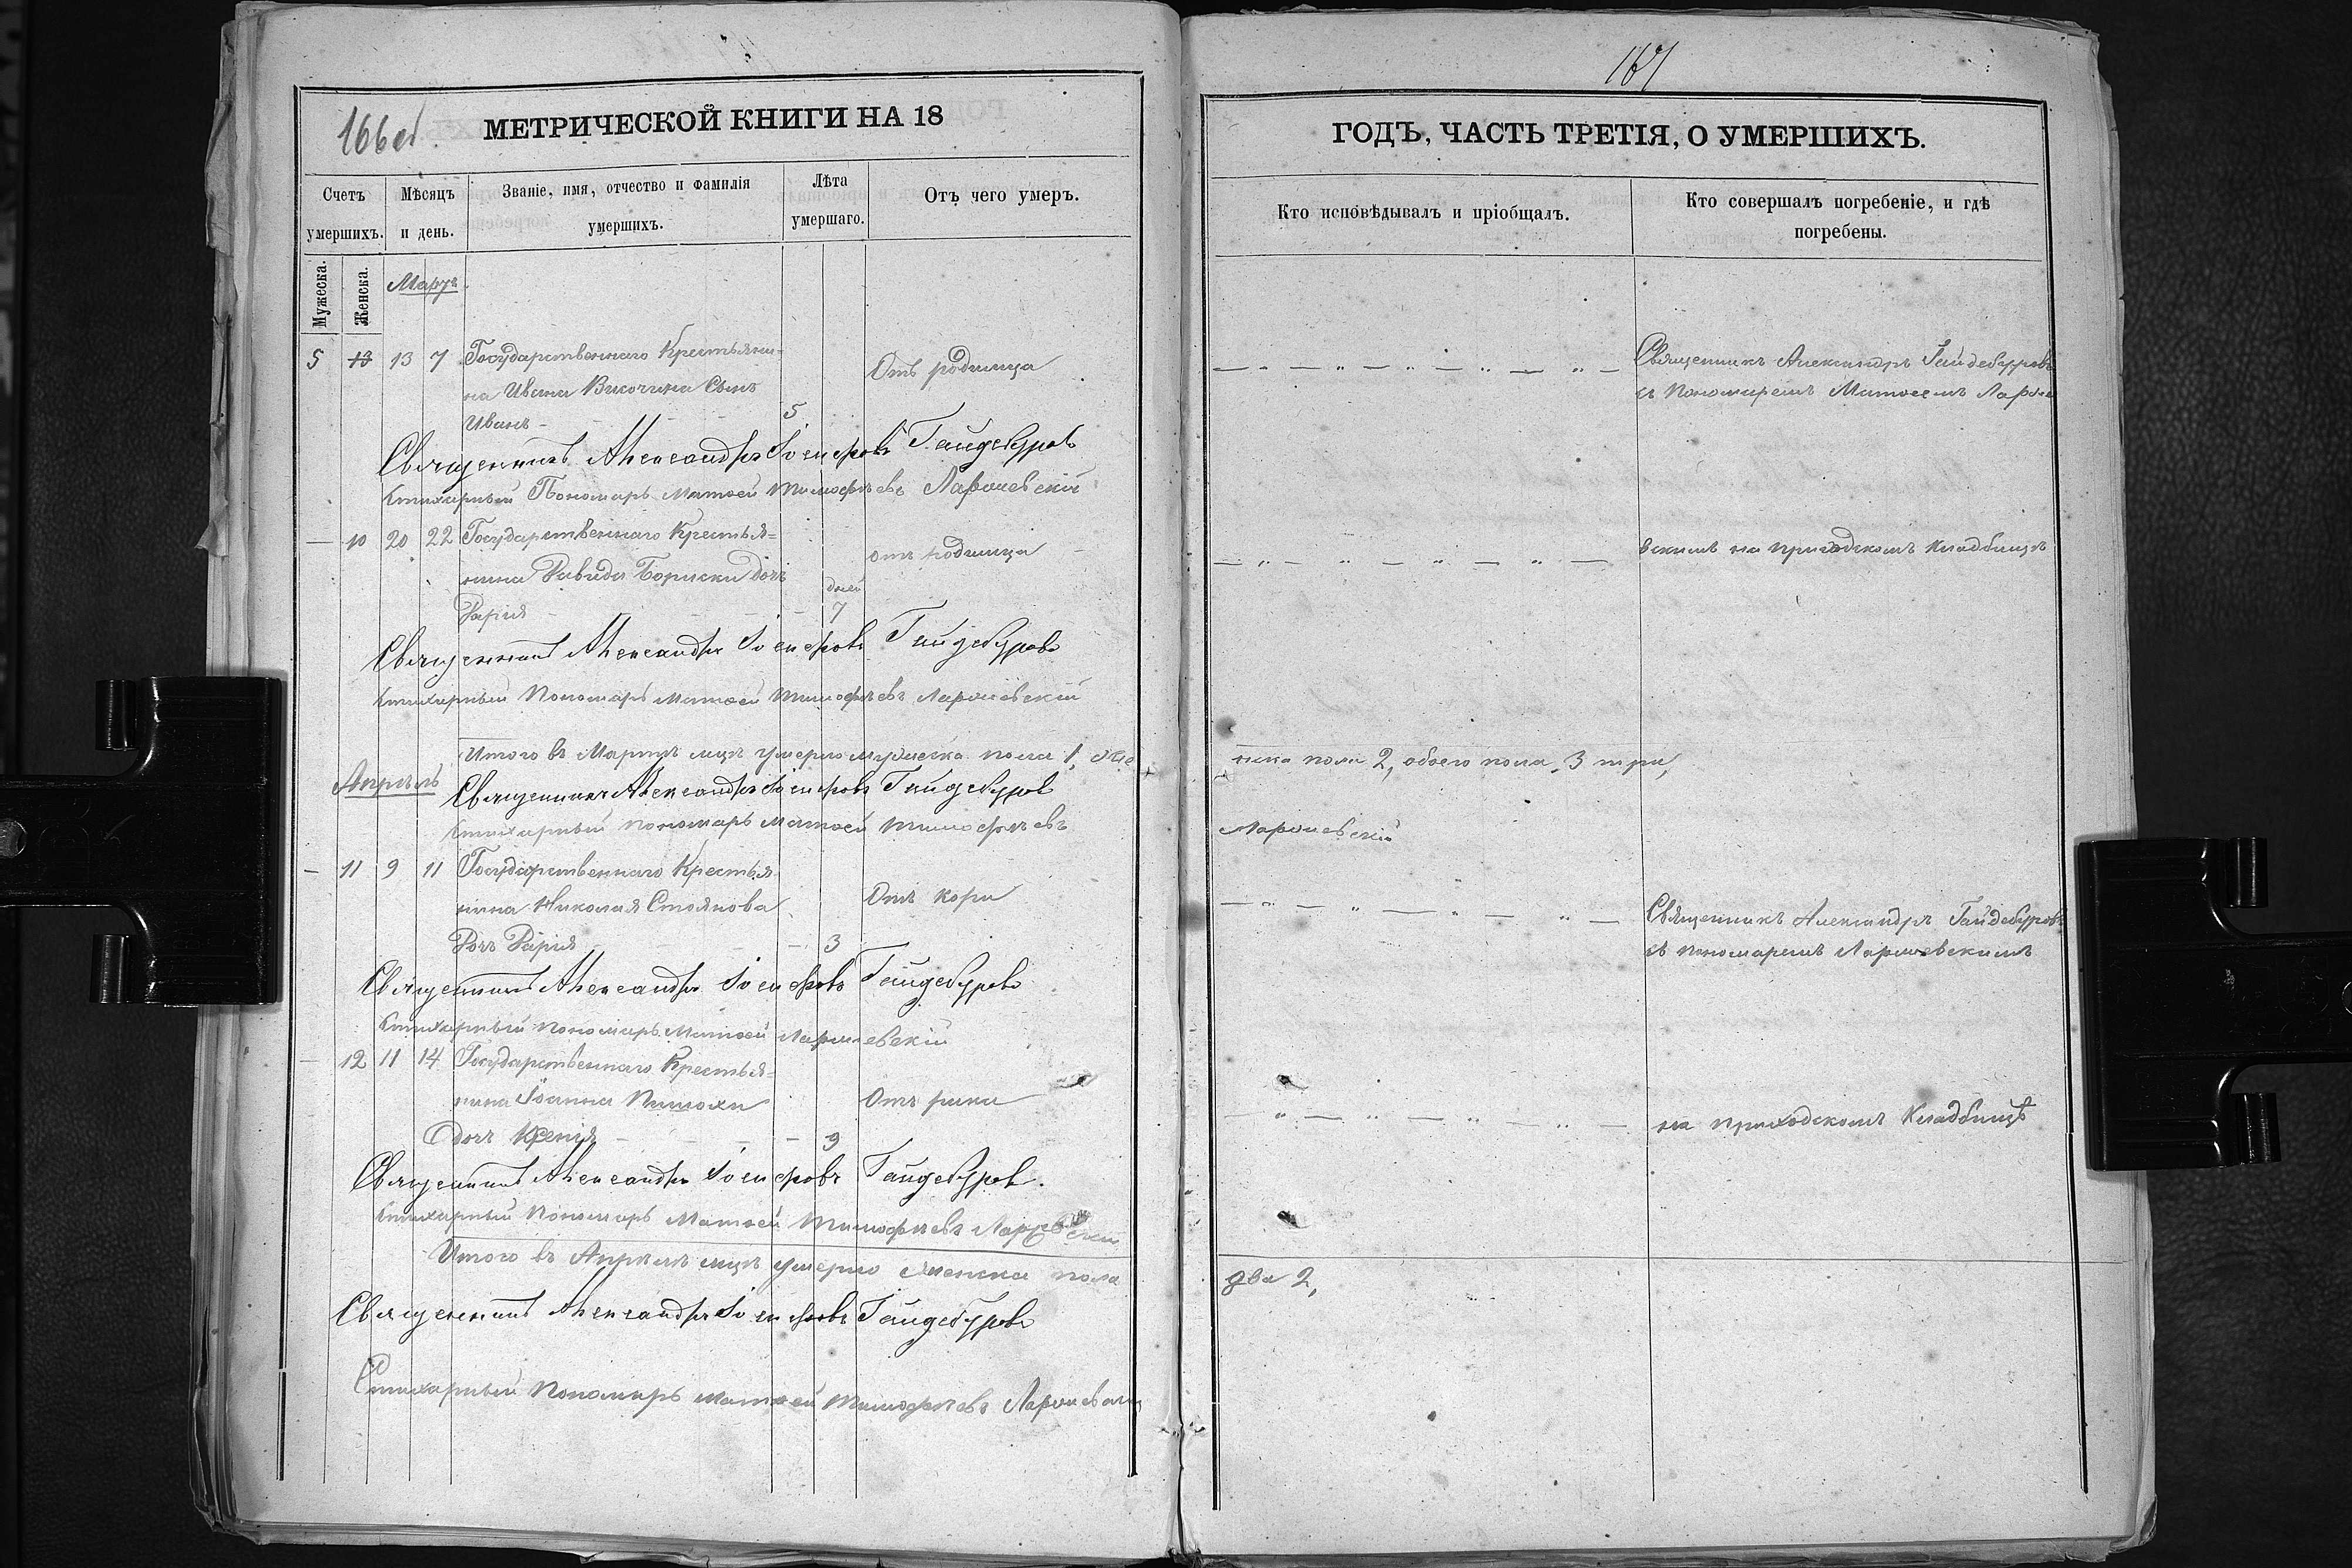 166об.
МЕТРИЧЕСКОЙ КНИГИ НА 18
Счетъ умершихъ.
Мѣсяцъ и день.
Званіе, имя, отчество и фамилія умершихъ.
Лѣта умершаго.
Отъ чего умеръ.
Мужеска.
Женска.
Мартъ
5 13 7 Государственнаго Крестьяни=
на Ивана Сынъ
Отъ родимца
Иванъ 5
Священникъ Александръ Іосифовъ Гайдебуровъ
Стихарный Пономарь Матѳей Тимофѣевъ
10 20 22 Государственнаго Крестья=
нина Давида Бориски дочь
отъ родимца
дней
Дарія 7
Священникъ Александръ Іосифовъ Гайдебуровъ
Стихарный Пономарь Матѳей Тимофѣевъ
Итого въ Мартѣ мцѣ умерло мужеска пола 1, же
Апрѣль
Священникъ Александръ Іосифовъ Гайдебуровъ
Стихарный пономарь Матѳей Тимофѣевъ
11 9 11 Государственнаго Крестья
нина Николая Стоянова
Отъ кори
Дочь Дарія 3
Священникъ Александръ Іосифовъ Гайдебуровъ
Стихарный пономарь Матѳей
12 11 14 Государственнаго Крестья=
нина Іоанна
Отъ
дочь 9
Священникъ Александръ Іосифовъ Гайдебуровъ.
Стихарный Пономарь Матѳей Тимофѣевъ
Итого въ Апрѣлѣ мцѣ умерло женска пола
Священникъ Александръ Іосифовъ Гайдебуровъ
Стихарный Пономарь Матѳей Тимофѣевъ
167
ГОДЪ, ЧАСТЬ ТРЕТІЯ, О УМЕРШИХЪ.
Кто исповѣдывалъ и пріобщалъ.
Кто совершалъ погребеніе, и гдѣ
погребены.
Священникъ Александръ Гайдебуровъ
съ Пономаремъ Матѳеемъ
вскимъ на приходскомъ кладбищѣ
нска пола 2, обоего пола 3 три,
Священникъ Александръ Гайдебуровъ
съ пономаремъ
на приходскомъ Кладбищѣ
два 2,